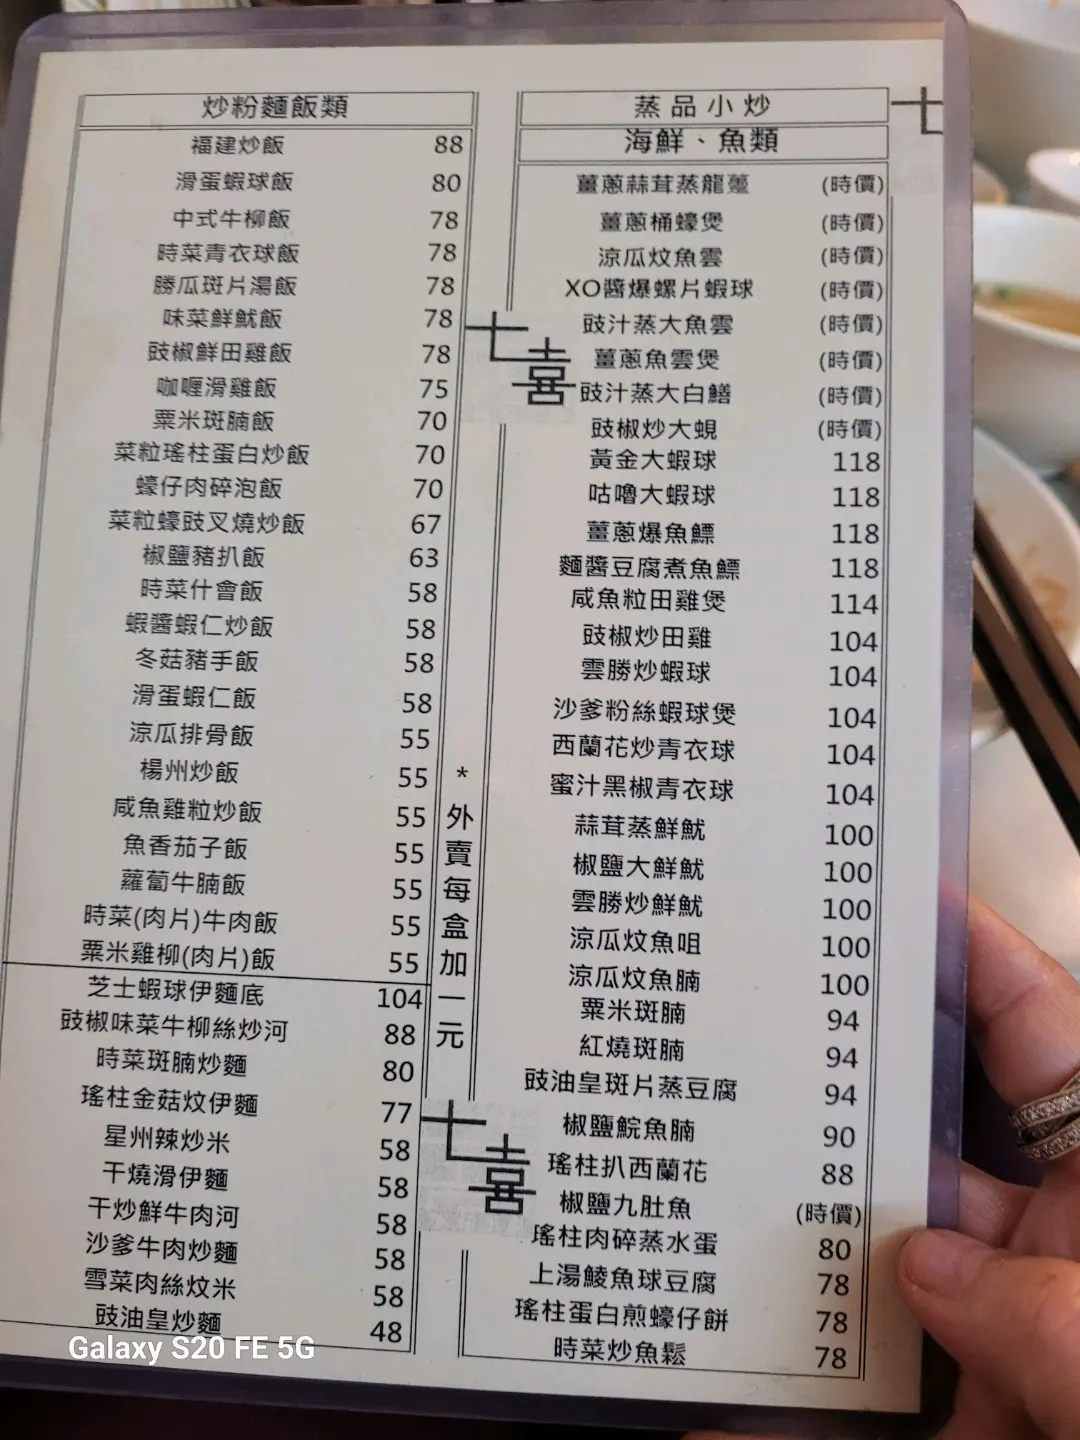 炒粉麵飯類
福建炒飯 88
滑蛋蝦球飯 80
中式牛柳飯 78
時菜青衣球飯 78
勝瓜斑片湯飯 78
味菜鮮魷飯 78
豉椒鮮田雞飯 78
咖喱滑雞飯 75
粟米斑腩飯 70
菜粒瑤柱蛋白炒飯 70
蠔仔肉碎泡飯 70
菜粒蠔豉叉燒炒飯 67
椒鹽豬扒飯 63
時菜什會飯 58
蝦醬蝦仁炒飯 58
冬菇豬手飯 58
滑蛋蝦仁飯 58
涼瓜排骨飯 55
楊州炒飯 55
咸魚雞粒炒飯 55
魚香茄子飯 55
蘿蔔牛腩飯 55
時菜(肉片)牛肉飯 55
粟米雞柳(肉片)飯 55
芝士蝦球伊麵底 104
豉椒味菜牛柳絲炒河 88
時菜斑腩炒麵 80
瑤柱金菇炆伊麵 77
星州辣炒米 58
干燒滑伊麵 58
干炒鮮牛肉河 58
沙爹牛肉炒麵 58
雪菜肉絲炆米 58
豉油皇炒麵 48
七喜
*外賣每盒加一元
七喜
蒸品小炒
海鮮、魚類
薑蔥蒜茸蒸龍躉 (時價)
薑蔥桶蠔煲 (時價)
涼瓜炆魚雲 (時價)
XO醬爆螺片蝦球 (時價)
豉汁蒸大魚雲 (時價)
薑蔥魚雲煲 (時價)
豉汁蒸大白鱔 (時價)
豉椒炒大蜆 (時價)
黃金大蝦球 118
咕嚕大蝦球 118
薑蔥爆魚鰾 118
麵醬豆腐煮魚鰾 118
咸魚粒田雞煲 114
豉椒炒田雞 104
雲勝炒蝦球 104
沙爹粉絲蝦球煲 104
西蘭花炒青衣球 104
蜜汁黑椒青衣球 104
蒜茸蒸鮮魷 100
椒鹽大鮮魷 100
雲勝炒鮮魷 100
涼瓜炆魚咀 100
涼瓜炆魚腩 100
粟米斑腩 94
紅燒斑腩 94
豉油皇斑片蒸豆腐 94
椒鹽鯇魚腩 90
瑤柱扒西蘭花 88
椒鹽九肚魚 (時價)
瑤柱肉碎蒸水蛋 80
上湯鯪魚球豆腐 78
瑤柱蛋白煎蠔仔餅 78
時菜炒魚鬆 78
七
Galaxy S20 FE 5G